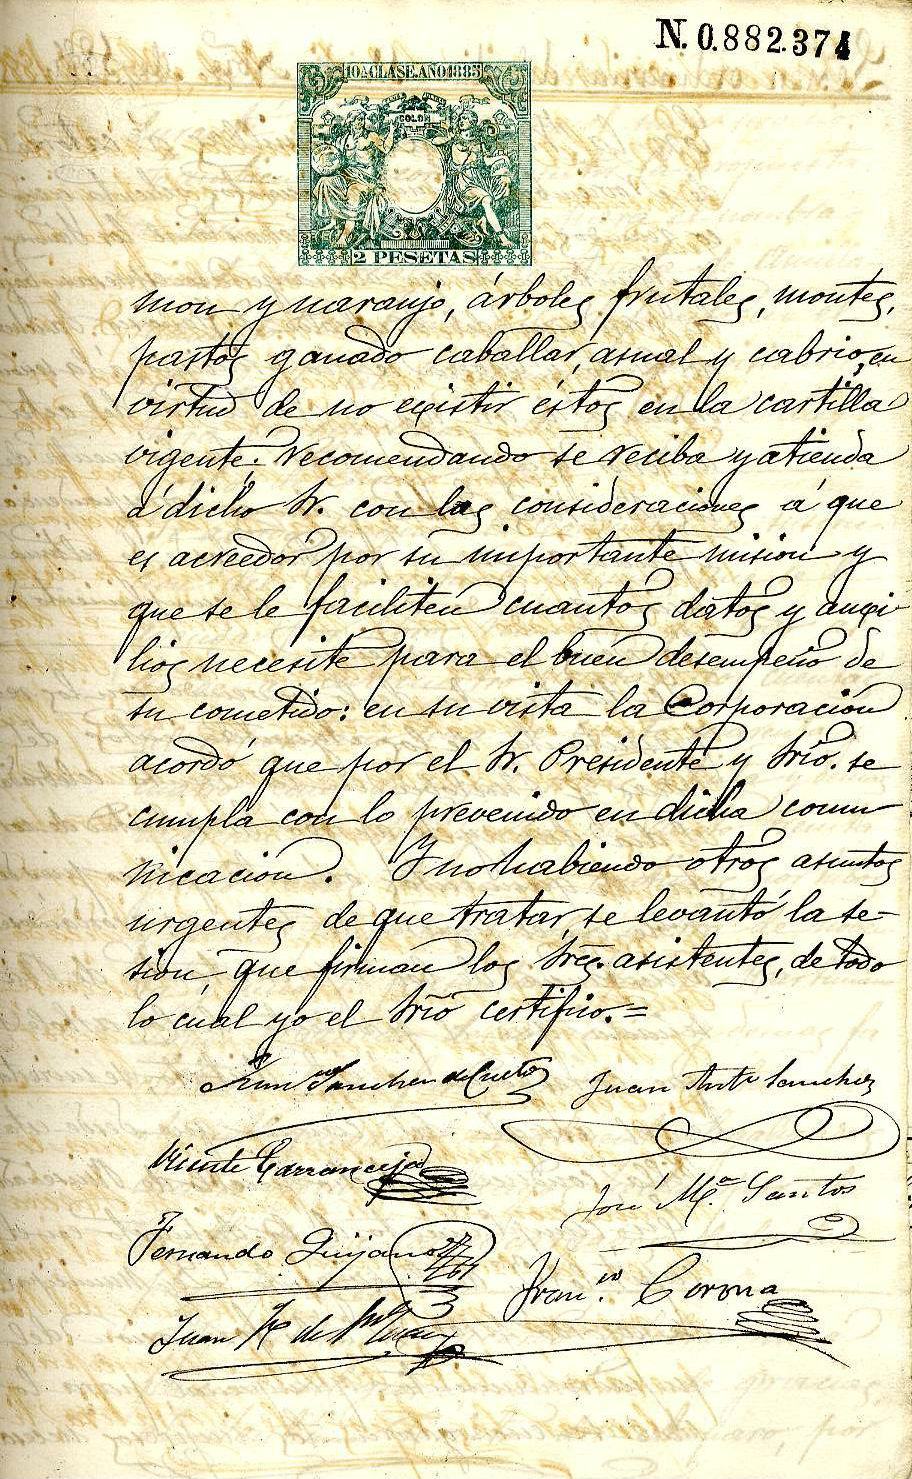 N. 0.882.374
10.ª CLASE. AÑO 1885
COLON
2 PESETAS
mon y naranjo, árboles frutales, montes,
pastos ganado caballar, asnal y cabrio, en
virtud de no existir éstos en la cartilla
vigente; recomendando se reciba y atienda
á dicho Sr. con las consideraciones á que
es acreedor por su importante mision y
que se le faciliten cuantos datos y auxi-
lios necesite para el buen desempeño de
su cometido: en su vista la Corporación
acordó que por el Sr. Presidente y Srio. se
cumpla con lo prevenido en dicha comu-
nicacion. Y no habiendo otros asuntos
urgentes de que tratar, se levantó la se-
sion, que firman los Sres. asistentes, de todo
lo cual yo el Srio certifico.=
Sanchez de Cueto Juan Antº Sanchez
Vicente Carrancejas
José Mª. Santos
Fernando Quijano
Francº. Corona
Juan